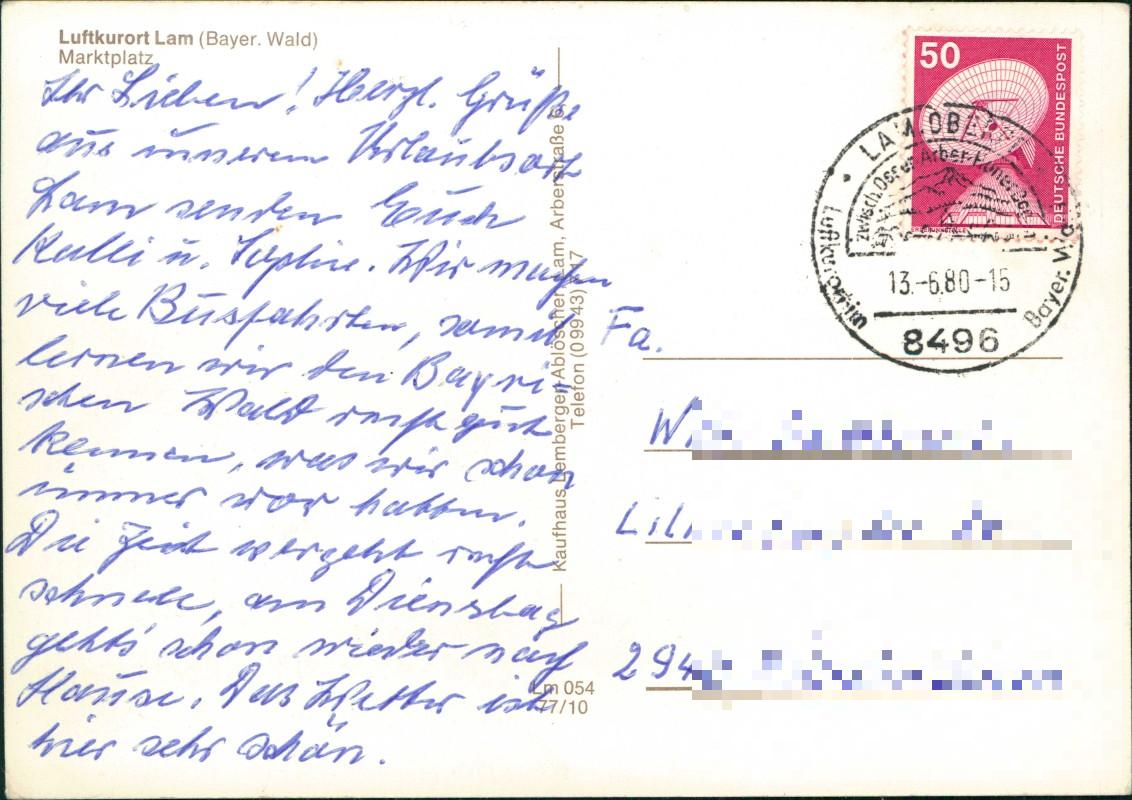 Luftkurort Lam (Bayer. Wald)
Marktplatz
Ihr Lieben! Herzl. Grüße
aus unserem Urlaubsort
Lam senden Euch
Kalli u. Sophie. Wir machen
viele Busfahrten, somit
lernen wir den Bayri-
schen Wald recht gut
kennen, was wir schon
immer vor hatten.
Die Zeit vergeht recht
schnell, am Dienstag
geht's schon wieder nach
Hause. Das Wetter ist
hier sehr schön.
Kaufhaus Lemberger Ablöscher, Lam, Arberstraße 5
Telefon (09943) 17
Lm 054
77/10
50
DEUTSCHE BUNDESPOST
LAM, OBE
zwisch. Osser Arber
Luftkurort im
Bayer. Wa
13.-6.80-15
8496
Fa.
W
Lil
294